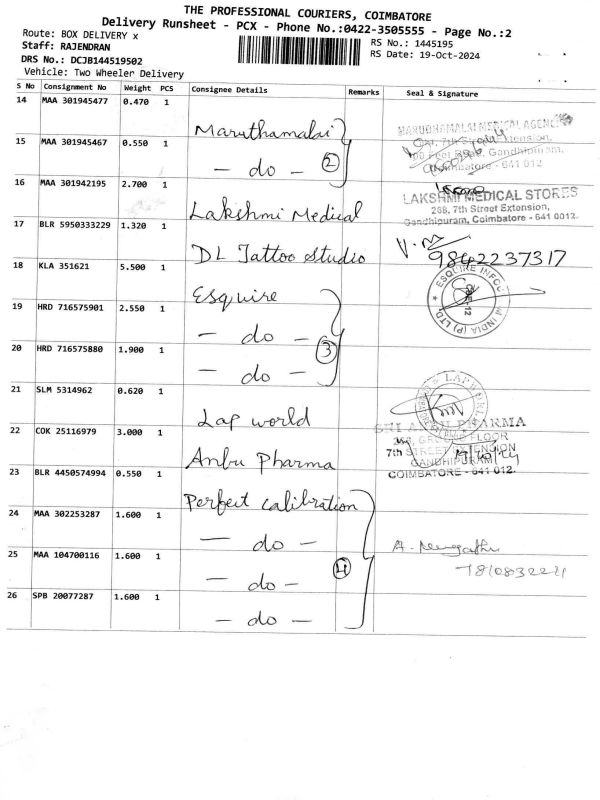 THE PROFESSIONAL COURIERS, COIMBATORE
Delivery Runsheet - PCX - Phone No.:0422-3505555 - Page No.:2
Route: BOX DELIVERY x
RS No.: 1445195
Staff: RAJENDRAN
RS Date: 19-Oct-2024
DRS No.: DCJB144519502
Vehicle: Two Wheeler Delivery
S No Consignment No Weight PCS Consignee Details Remarks Seal & Signature
14 MAA 301945477 0.470 1 Maruthamalai MARUDHAMALAI MEDICAL AGENCIES
15 MAA 301945467 0.550 1 - do - 2
Gandhipuram,
Coimbatore - 641 012
16 MAA 301942195 2.700 1 Lakshmi Medical LAKSHMI MEDICAL STORES
268, 7th Street Extension,
Gandhipuram, Coimbatore - 641 0012.
17 BLR 5950333229 1.320 1 DL Tattoo Studio 9842237317
18 KLA 351621 5.500 1 Esquire ESQUIRE INFOCOM INDIA (P) LTD.
19 HRD 716575901 2.550 1 - do - 3
20 HRD 716575880 1.900 1 - do -
21 SLM 5314962 0.620 1 Lap world LAP WORLD
22 COK 25116979 3.000 1 Anbu Pharma SRI ANBU PHARMA
268, GROUND FLOOR
7th STREET EXTENSION
GANDHIPURAM
COIMBATORE - 641 012.
23 BLR 4450574994 0.550 1 Perfect calibration
24 MAA 302253287 1.600 1 - do -
25 MAA 104700116 1.600 1 - do - 4
26 SPB 20077287 1.600 1 - do -